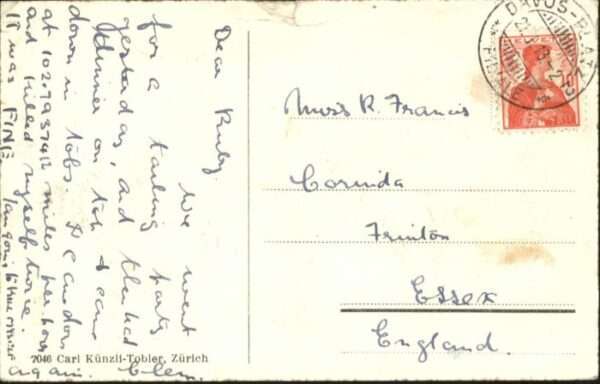 Dear Ruby
We went
for a tailing party
yesterday, and then had
dinner on top & came
down in tobs. I came down
at 102.7937412 miles per hour
and killed myself twice.
It was FINE. I am going to
again. Clem.
2046 Carl Künzli-Tobler, Zürich
DAVOS-PLATZ
Miss R. Francis
Corinda
Frinton
Essex
England.